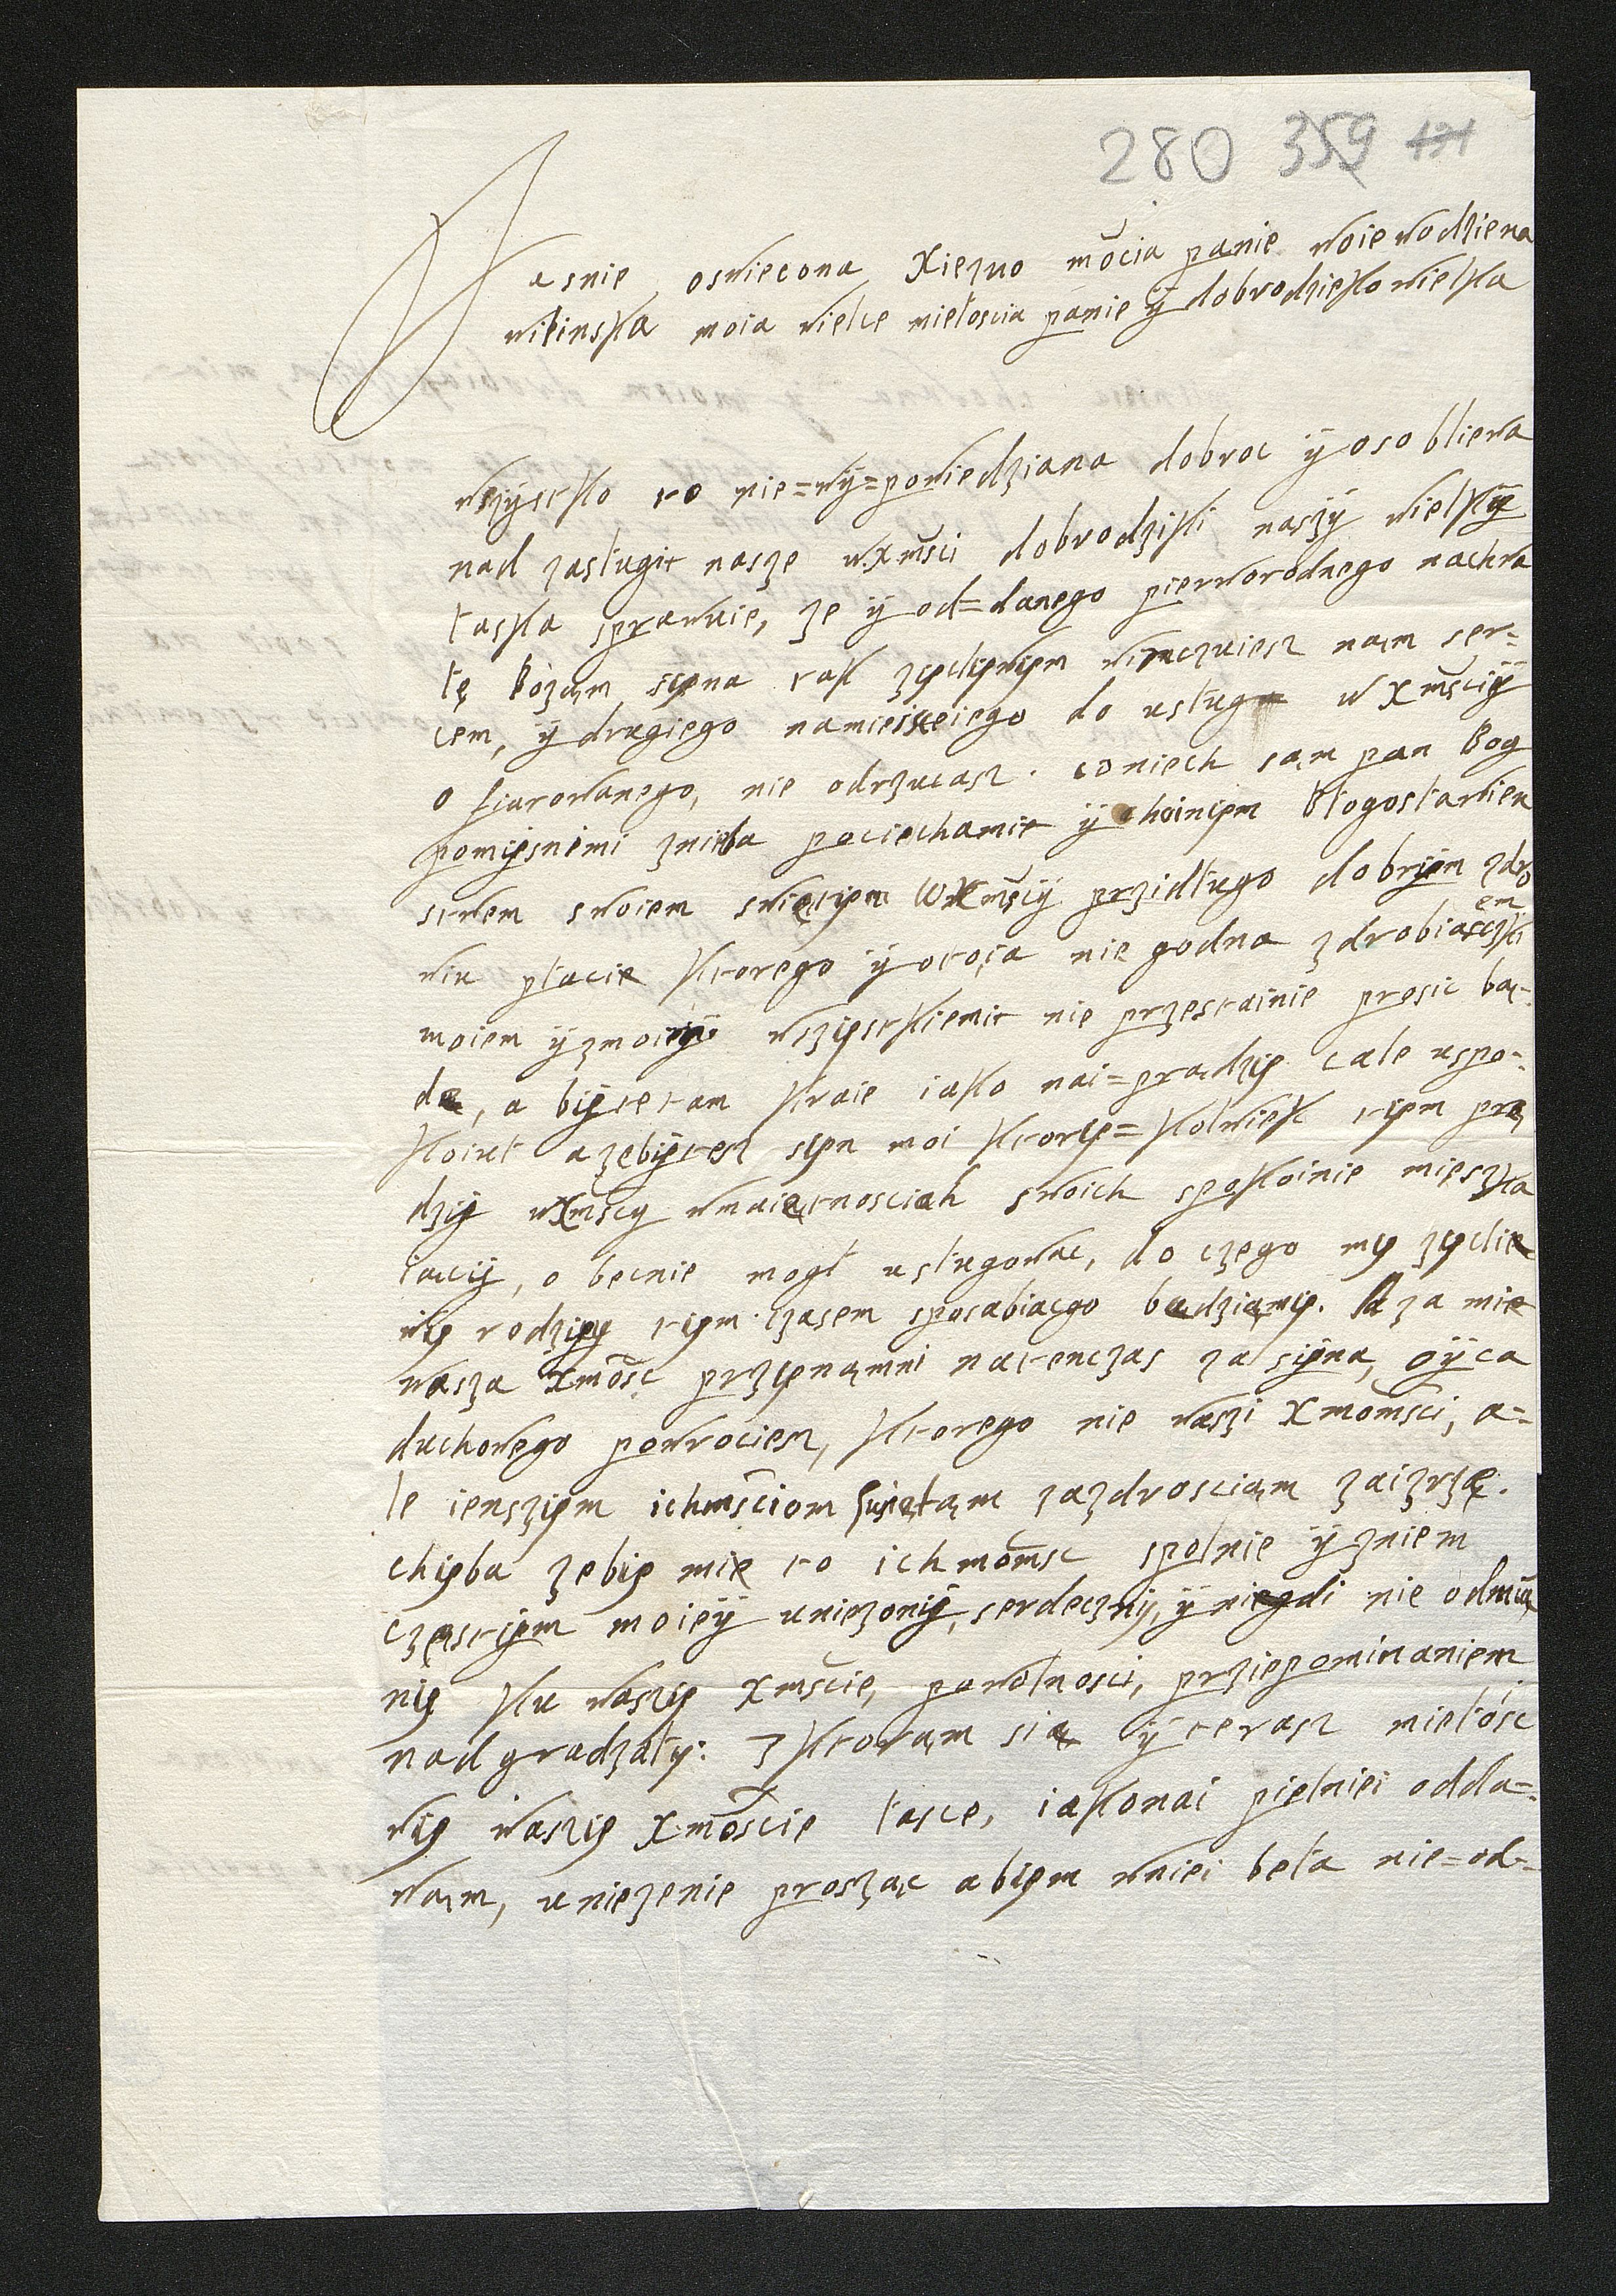 280 359
Jasnie oswiecona Xiezno mocia panie woiewodziena
wilinska moia wielce miełoscia panie ÿ dobrodzieko wielka
wszÿstko to nie=wÿ=powiedziana dobroc ÿ osobliewa
nad zasługit nasze w.xmsci dobrodziki naszÿ wielkÿ
łaska sprawuie, ze ÿ od=danego pierworodnego nachwa
łę Bozam sÿna tak zÿcliwÿm winczuiesz nam ser=
cem, ÿ drugiego namieisceiego do usług w xmsciÿ
ofiarowanego, nie odrzucasz. co niech sam pan Bog
pomÿsnemi znieba pociechamit ÿ choinÿm błogosławien
stwem swoiem swiętÿm Wxmsciÿ przidługo dobrÿm zdro
wiu płacie ktorego ÿ otoia nie godna zdrobiasczki em
moiem ÿ zmoieÿ wszÿstkiemit nie przestainie prosic bat=
de, a bÿ te tam kraie iako nai=pradzÿ cale uspo=
koiuł azebÿtesz sÿn moi ktorÿ=kolwiek tÿm prę
dzÿ wxmscy wmaiętnosciach swoich spokoinie mieszka
iacÿ, o becnie mogł usługowac, do czego mÿ zÿcliе
wÿ rodzicy tÿm czasem sposabiacgo bądziamÿ. A za mie
wasza xmosc przÿnamni natenczas za sÿna, oÿca
duchowego powrociesz, ktorego nie waszi xmomsci, a=
le ienszÿm ichmsciom swiętam zazdrosciam zaizrzę.
chÿba zebÿ mie to ichmomsc spolnie ÿ zniem
częstÿm moieÿ uniezonÿ, serdecznÿ, ÿ niegdi nie odmia
nÿ ku waszÿ xmscie, powolnosci, prziepominaniem
nadgradzałÿ: z ktoram sie ÿ terasz miełosc
wÿ waszÿ xmoscie łasce, iakonai pielniei odda=
wam, uniezenie proszac abÿm wniei beła nie=od=